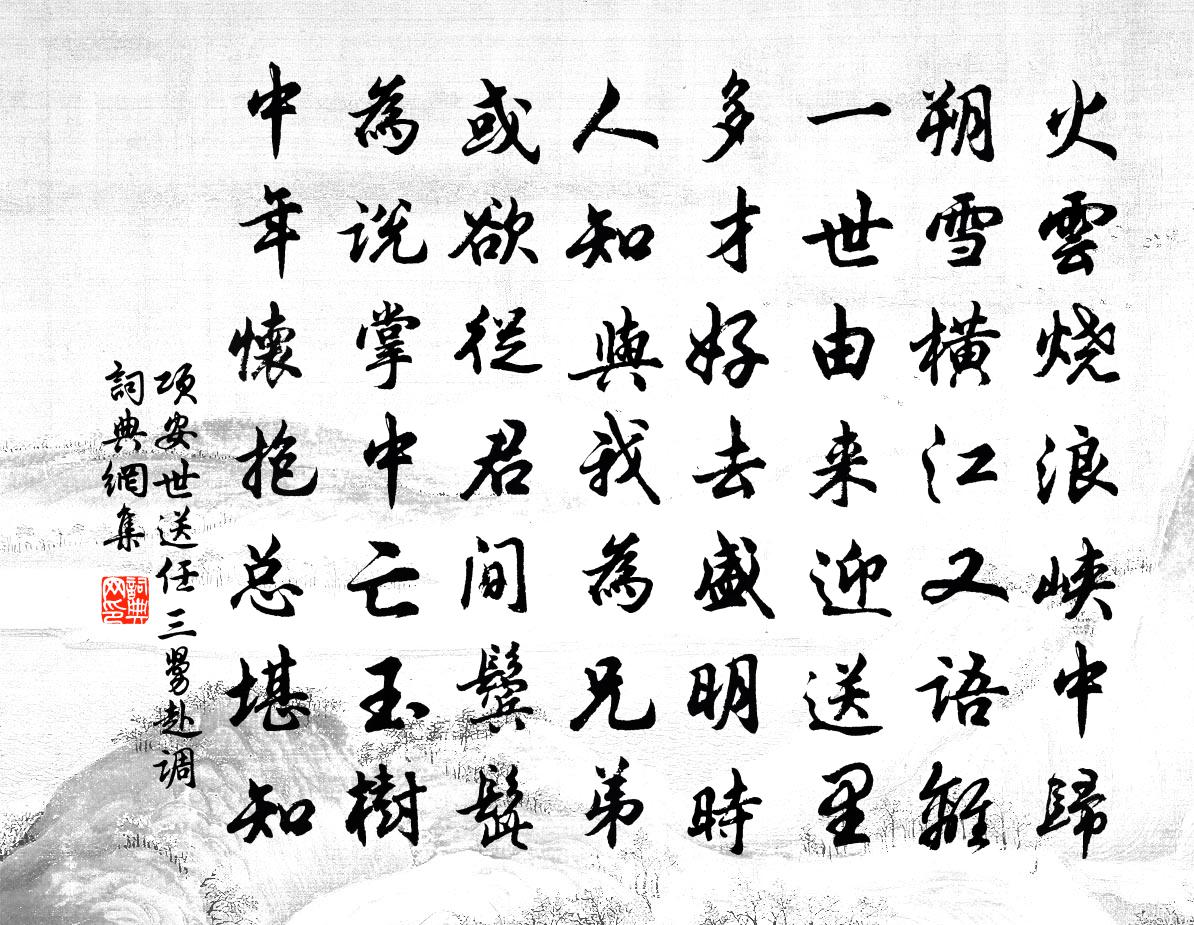 火雲燒浪峽中歸
朔雪橫江又語離
一世由来迎送里
多才好去盛明時
人知與我為兄弟
或欲從君間鬢髭
為説掌中亡玉樹
中年懷抱总堪知
项安世送任三舅赴调
詞典網集
詞典网印